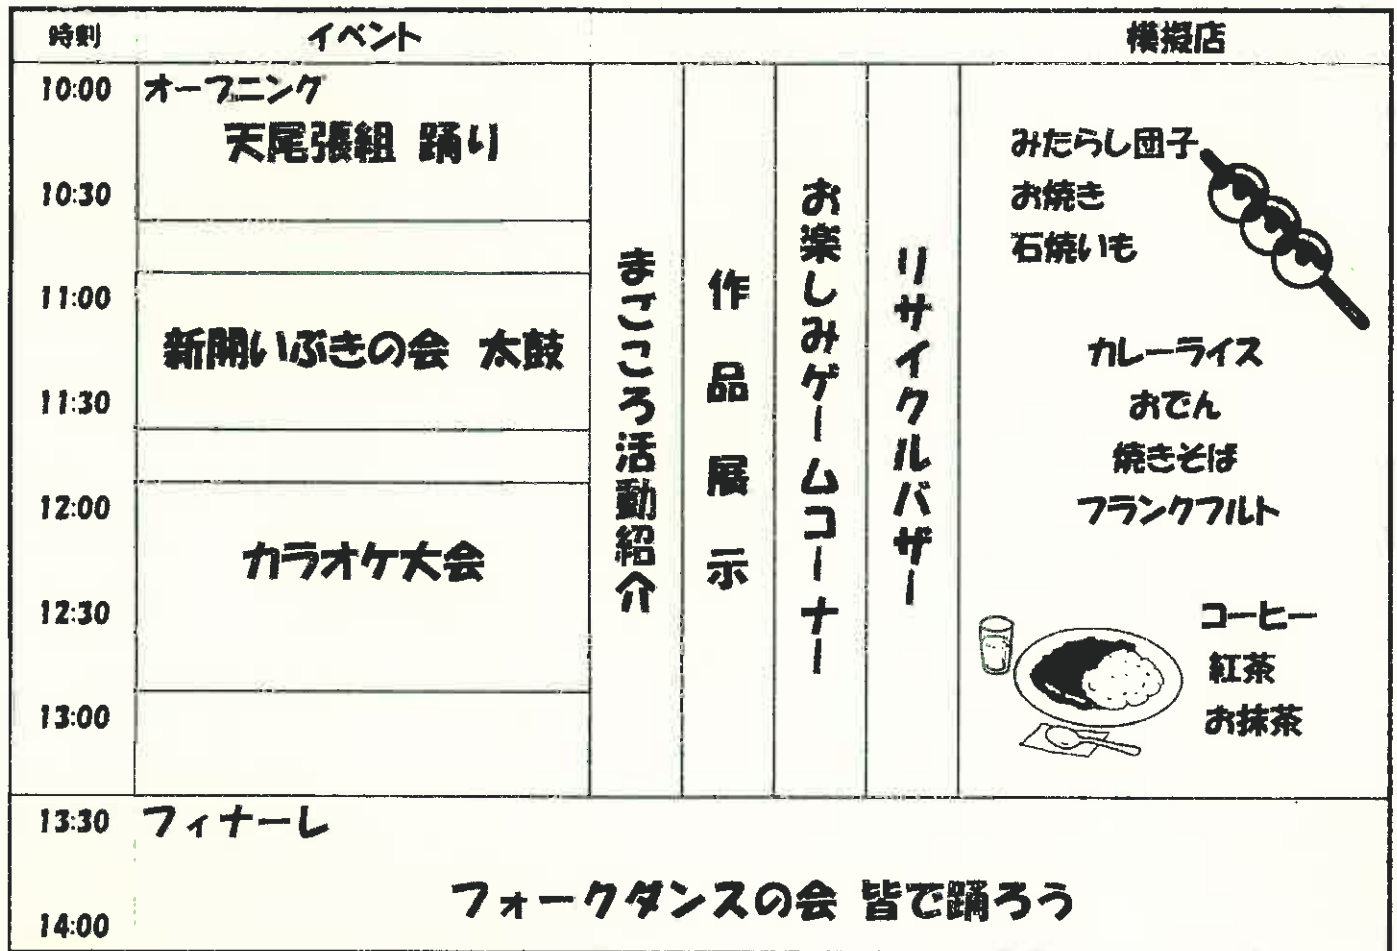 時刻 イベント 模擬店
10:00 オープニング
天尾張組 踊り
10:30
11:00
新開いぶきの会 太鼓
11:30
12:00
カラオケ大会
12:30
13:00
まごころ活動紹介
作品展示
お楽しみゲームコーナー
リサイクルバザー
みたらし団子
お焼き
石焼いも
カレーライス
おでん
焼きそば
フランクフルト
コーヒー
紅茶
お抹茶
13:30 フィナーレ
フォークダンスの会 皆で踊ろう
14:00